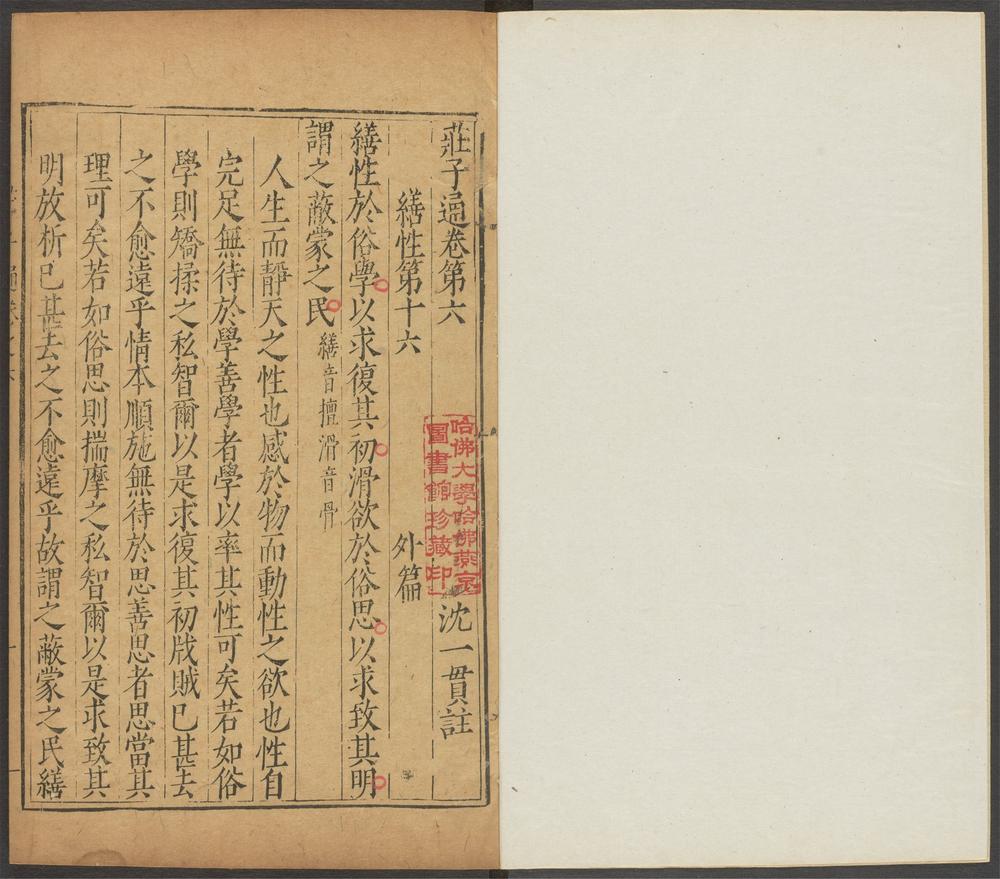 莊子通卷第六
沈一貫註
繕性第十六
外篇
繕性於俗學以求復其初滑欲於俗思以求致其明
謂之蔽蒙之民繕音擅滑音骨
人生而靜天之性也感於物而動性之欲也性自
完足無待於學善學者學以率其性可矣若如俗
學則矯揉之私智爾以是求復其初戕賊已甚去
之不愈遠乎情本順施無待於思善思者思當其
理可矣若如俗思則揣摩之私智爾以是求致其
明放析已甚去之不愈遠乎故謂之蔽蒙之民繕
哈佛大學哈佛燕京
圖書館珍藏印